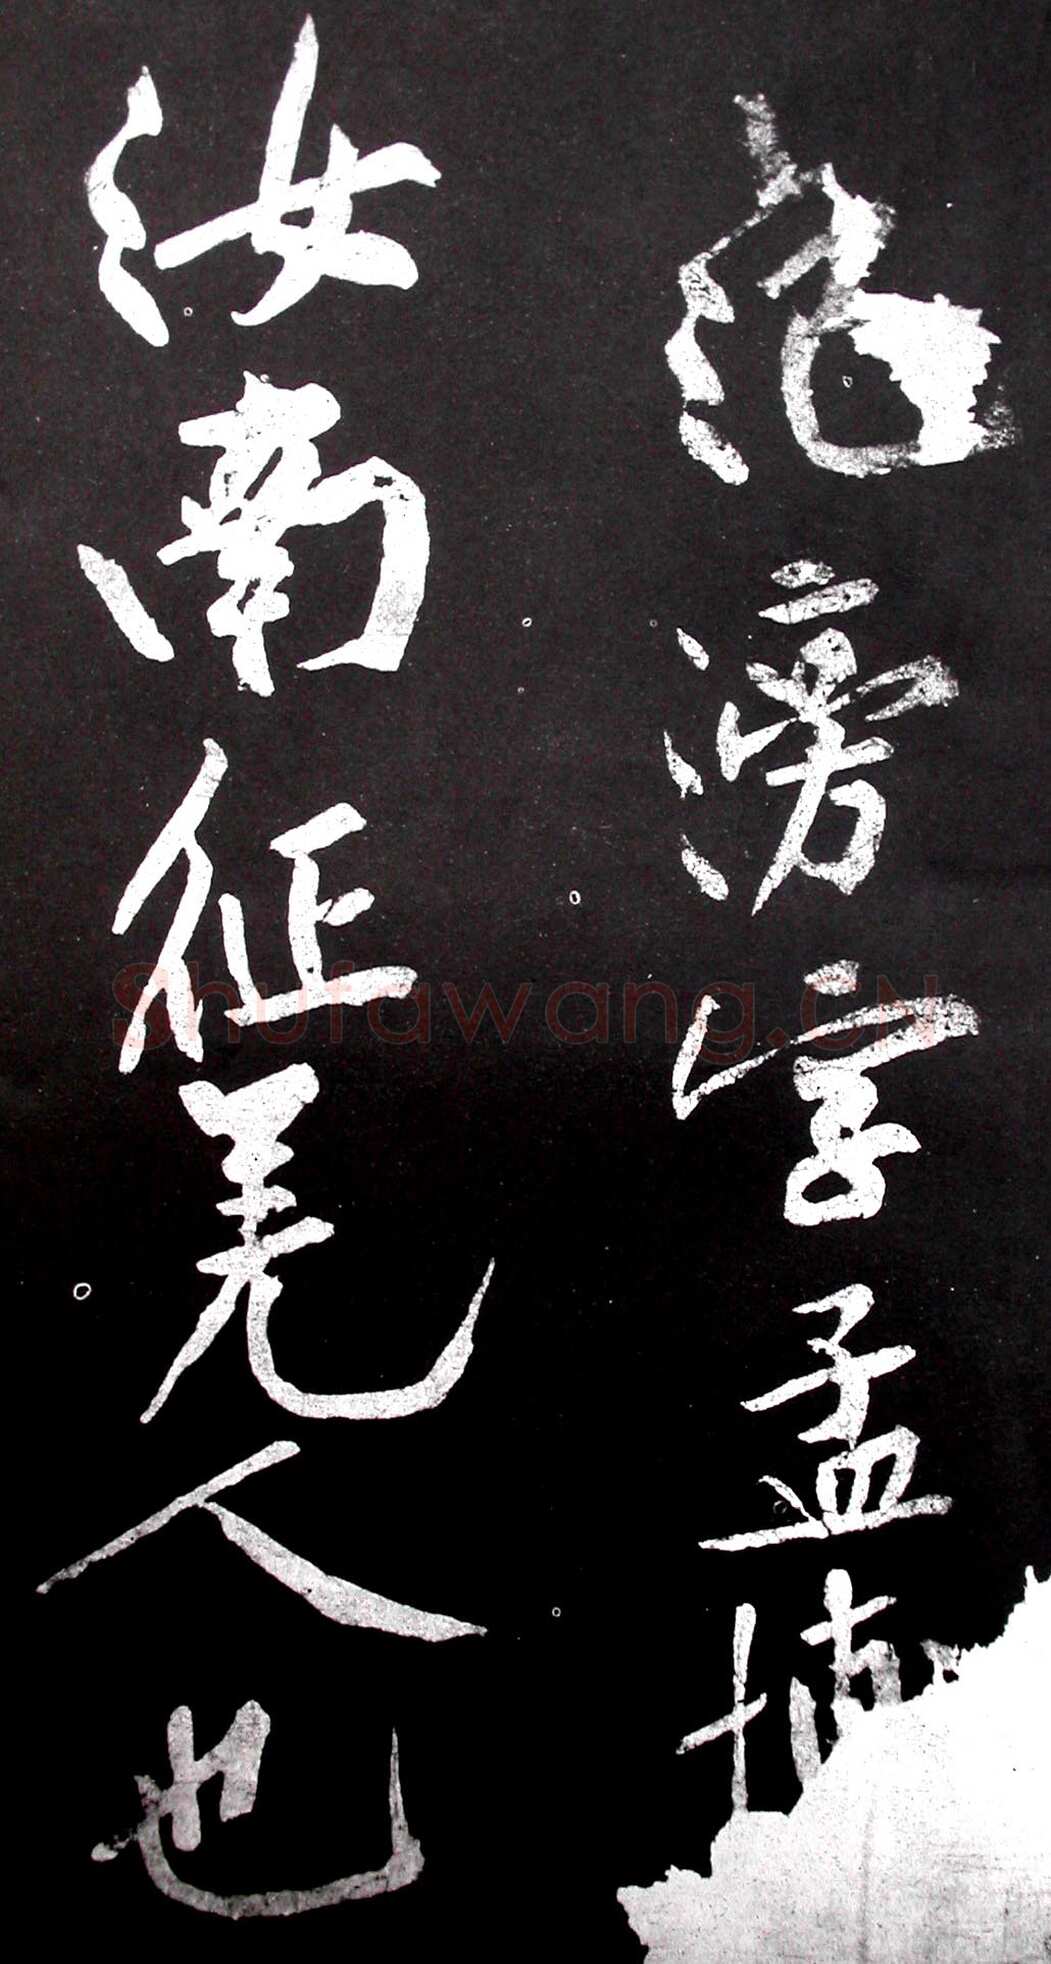 范滂字孟博
汝南征羌人也
Shufawang.CN